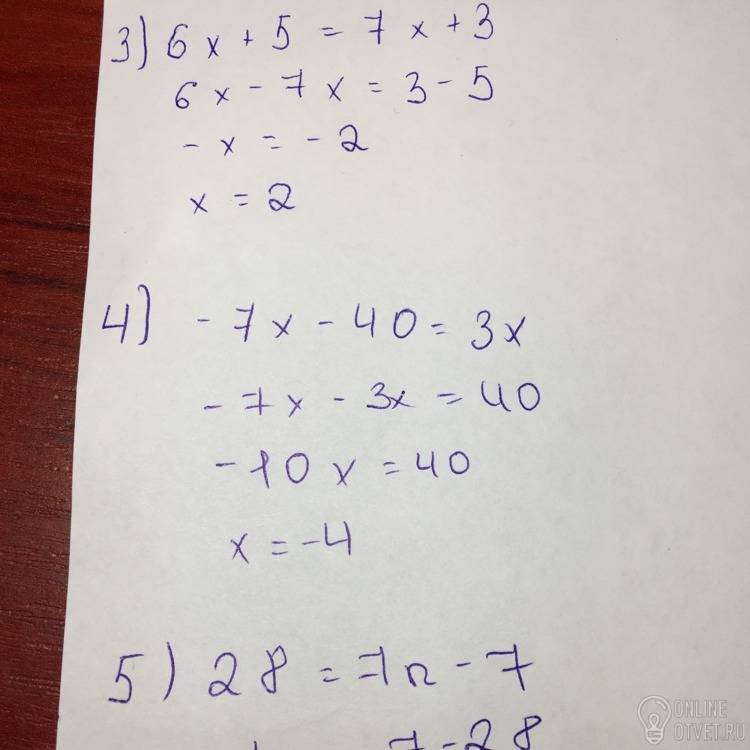 3) 6x + 5 = 7x + 3
6x - 7x = 3 - 5
- x = - 2
x = 2
4) - 7x - 40 = 3x
- 7x - 3x = 40
- 10x = 40
x = - 4
5) 28 = 7n - 7
7 - 28
ONLINE
OTVET.RU